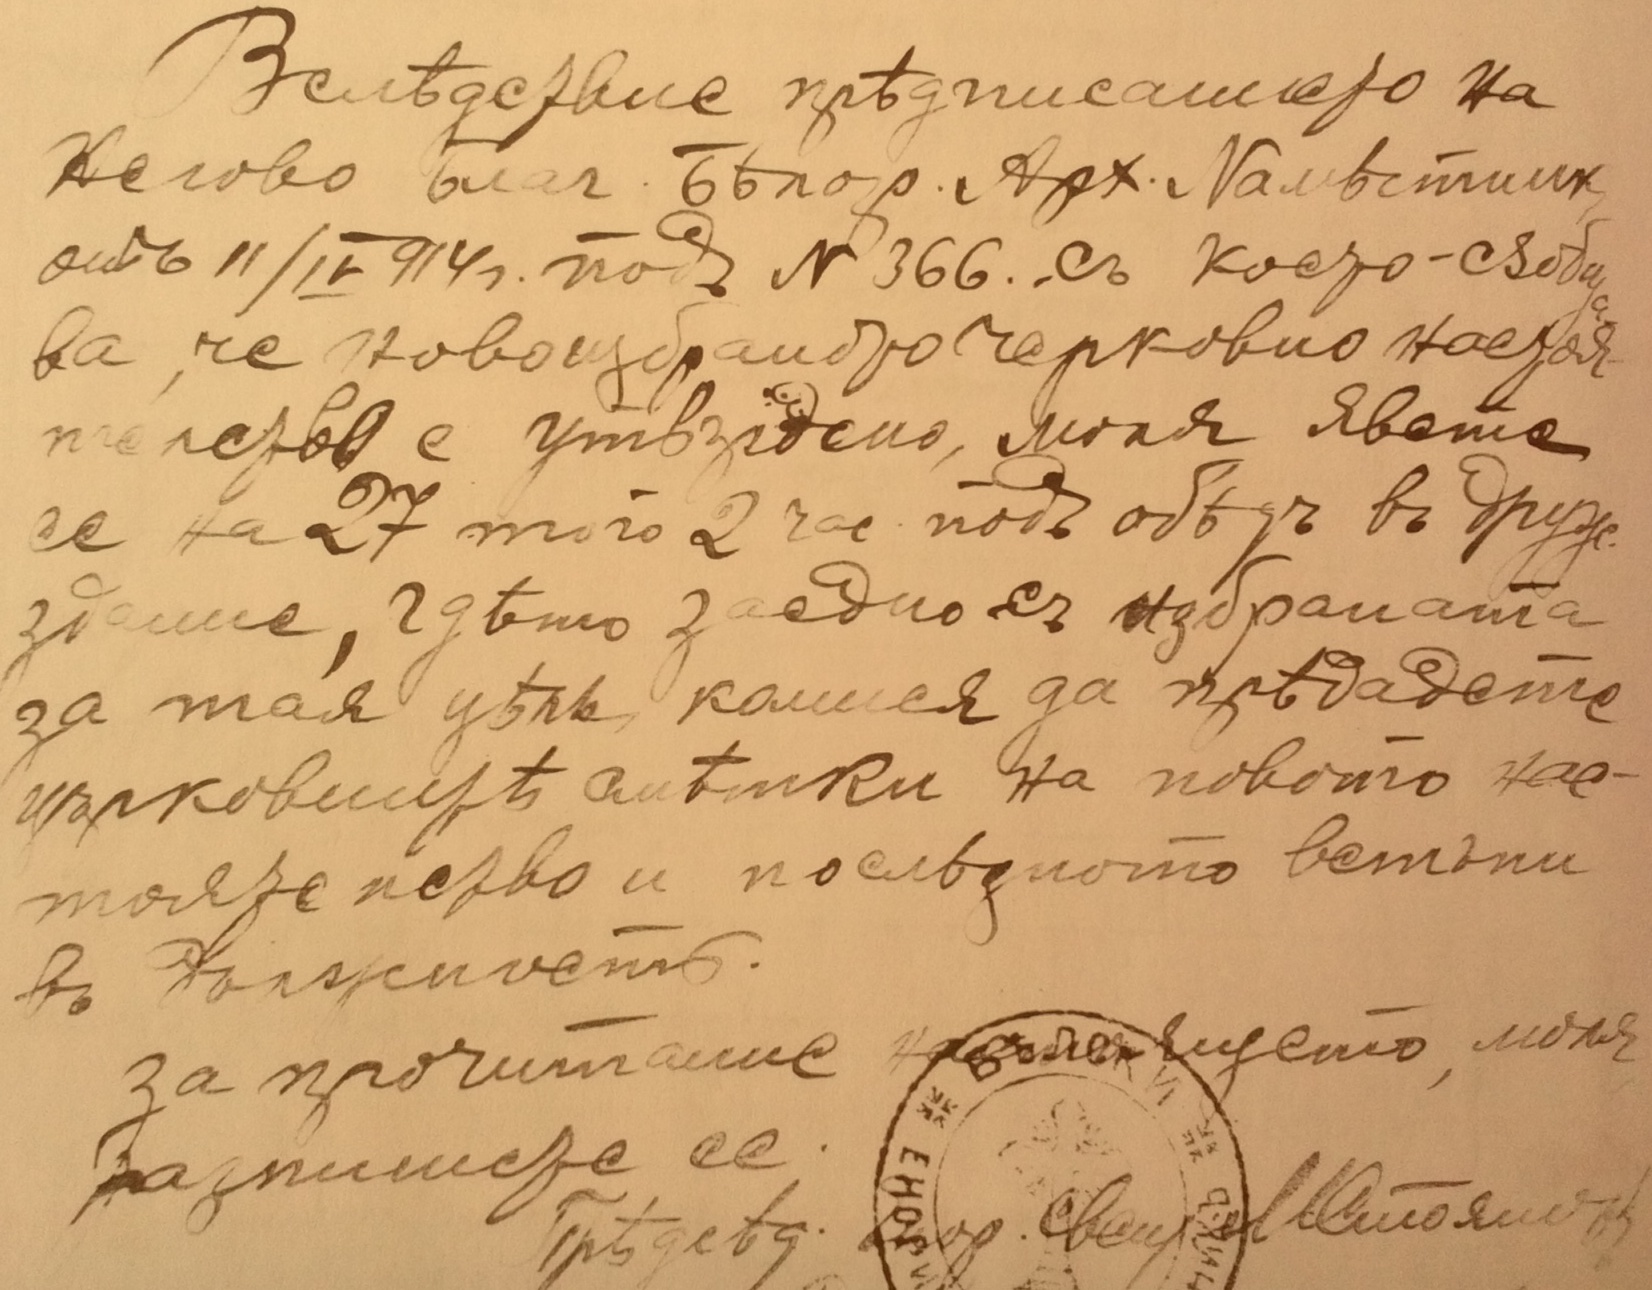 Вслѣдствие прѣдписанието на
Негово Благ. Бѣлогр. Арх. Намѣстник
отъ 11/IV 914 г. подъ N 366. съ което - съобща
ва, че новоизбраното черковно настоя-
телство е утвърдено, моля явете
се на 27 того 2 час. подъ обѣдъ въ Друж.
здание, гдѣто заедно съ избраната
за тая цѣль, комисия да прѣдадете
църковнитѣ смѣтки на новото нас-
тоятелство и послѣдното встъпи
въ длъжность.
За прочитание настоящето, моля
разпишете се.
Прѣдсѣд. Свещ. Стоянов
ЕНОРИ